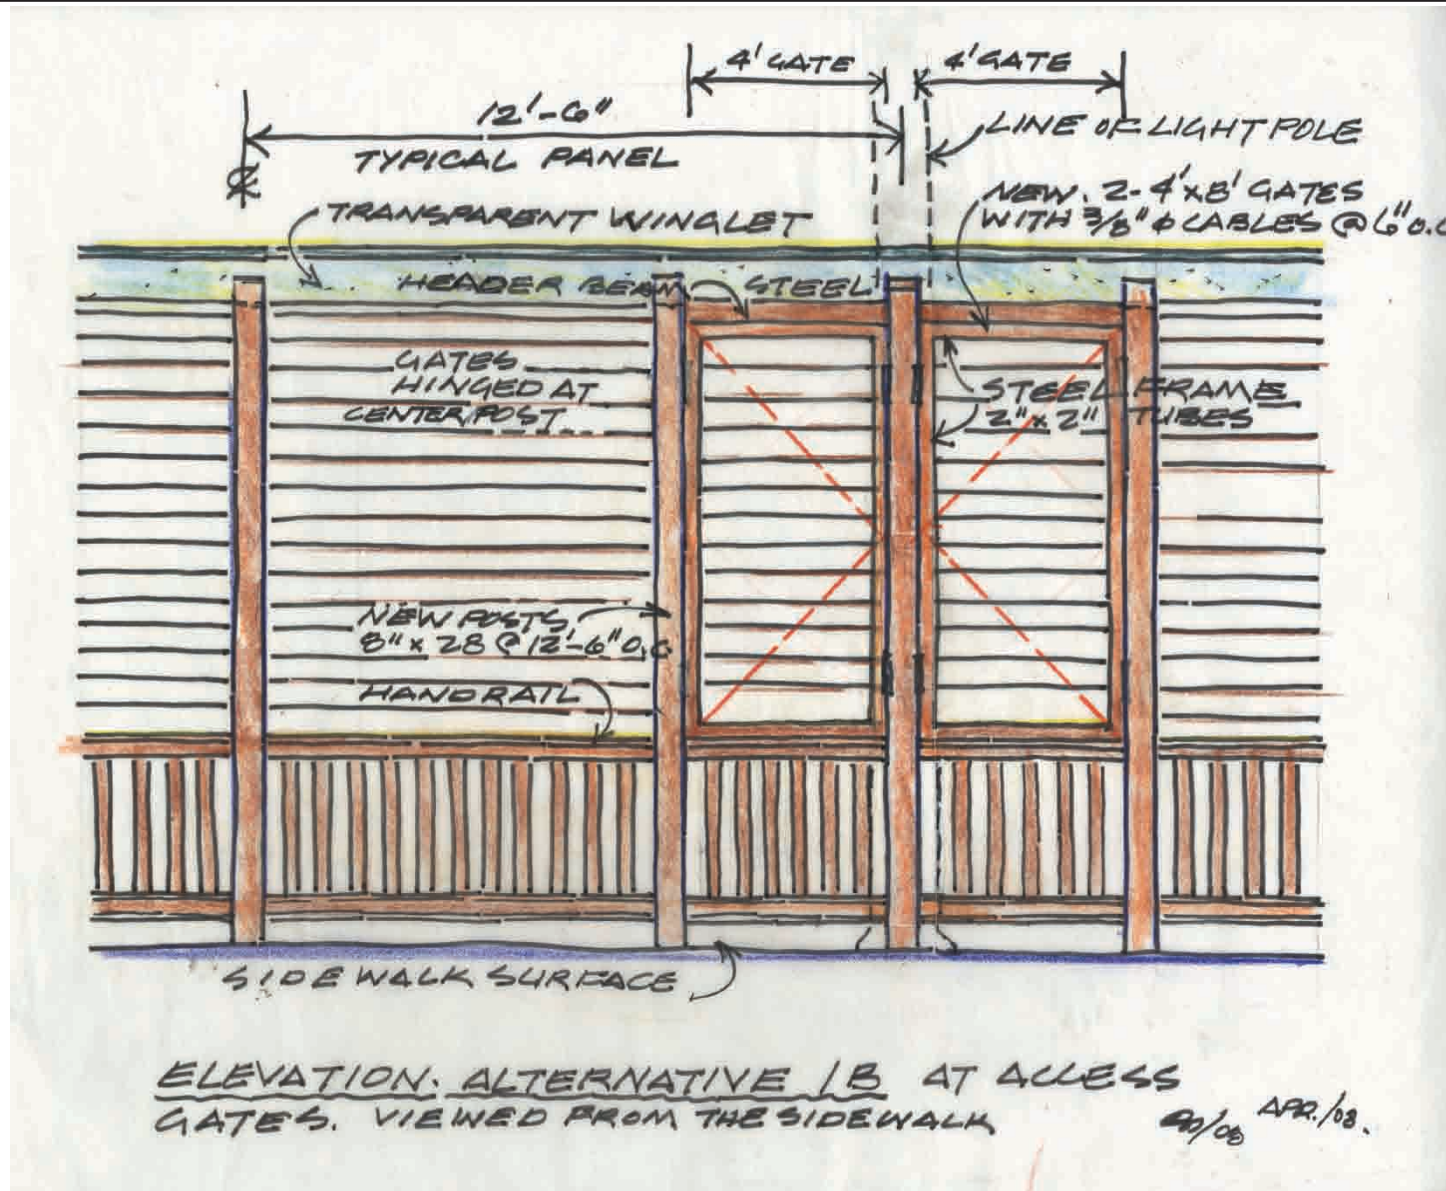 4' GATE
4' GATE
12'-6"
TYPICAL PANEL
LINE OF LIGHT POLE
NEW. 2-4'x8' GATES
WITH 3/8" ⌀ CABLES @ 6" O.C
TRANSPARENT WINGLET
HEADER BEAM STEEL
GATES
HINGED AT
CENTER POST
STEEL FRAME
2"x2" TUBES
NEW POSTS
8" x 28 @ 12'-6" O.C
HANDRAIL
SIDEWALK SURFACE
ELEVATION. ALTERNATIVE 1B AT ACCESS
GATES. VIEWED FROM THE SIDEWALK
APR./08.